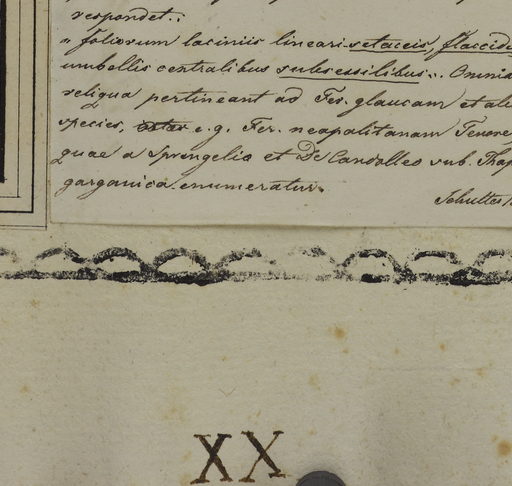 respondet.:
„ foliorum laciniis lineari-setaceis, flaccid
umbellis centralibus subsessilibus.. Omnia
reliqua pertineant ad Fer. glaucam et ali
species, e.g. Fer. neapolitanam Tenore
quae a Sprengelio et De Candolleo sub. Thap
garganica enumeratur.
Schultes
XX